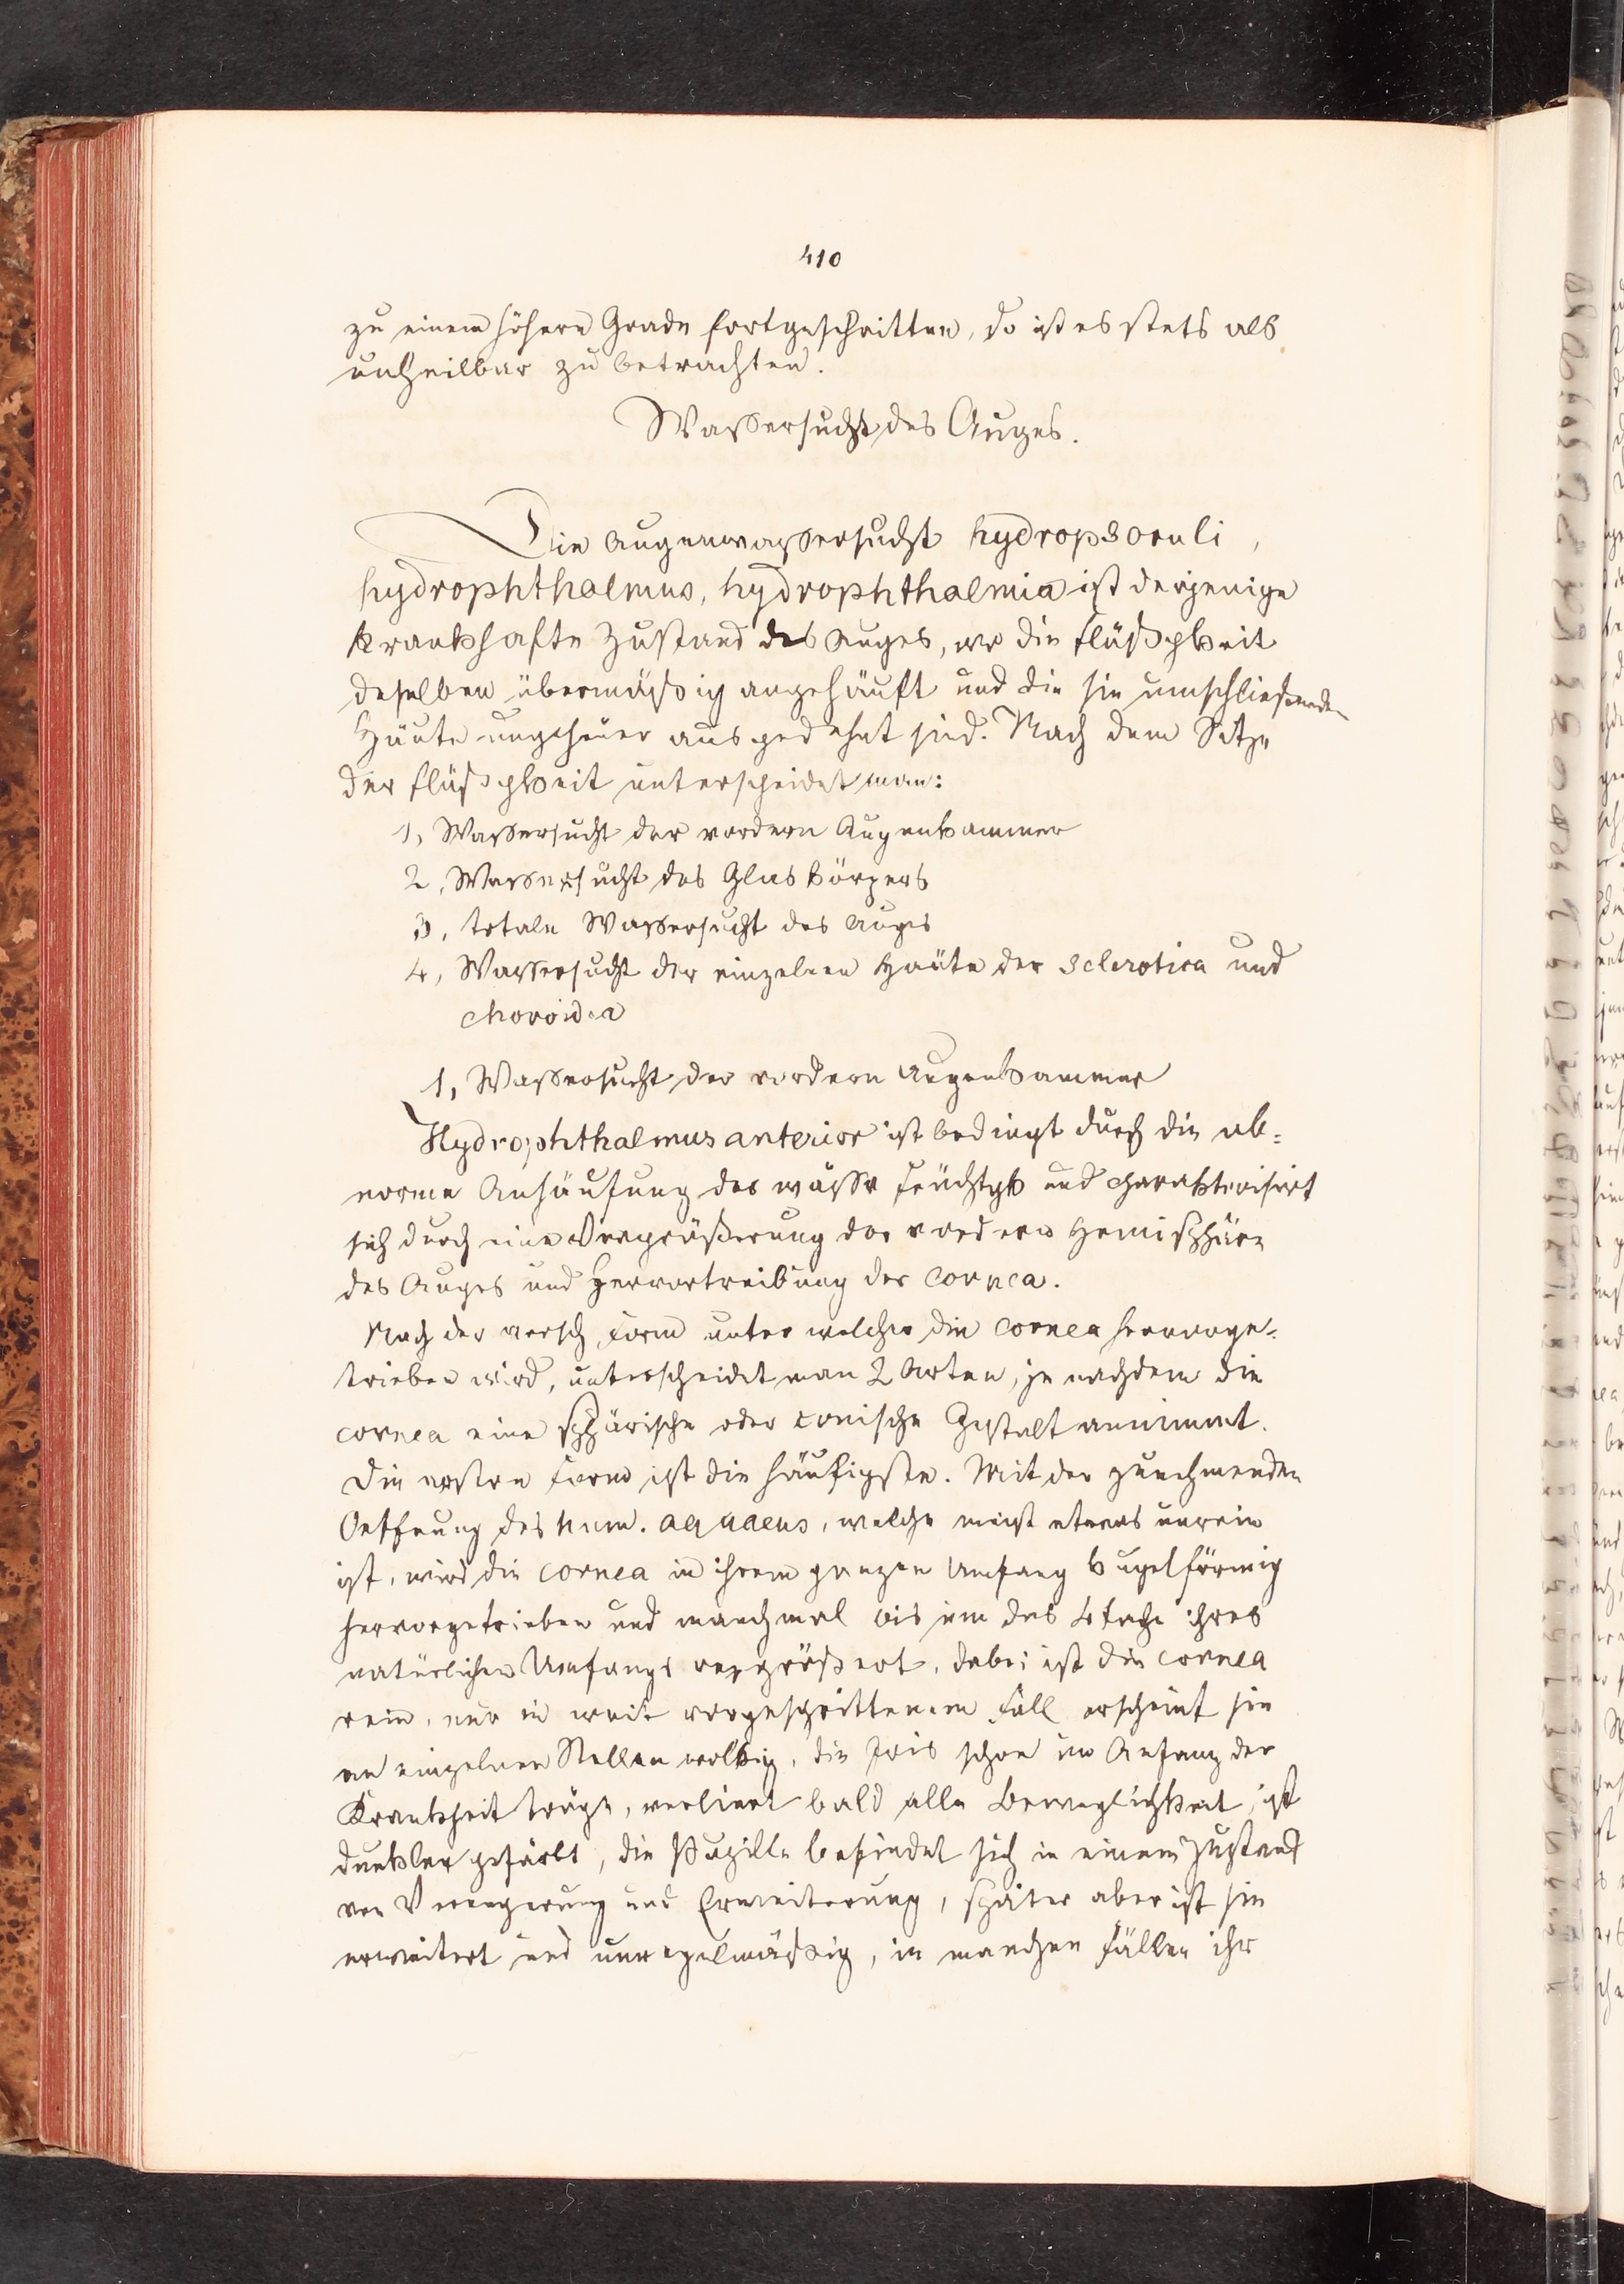 410
zu einem höhern Grade fortgeschritten, so ist es stets als
unheilbar zu betrachten.
Waßersucht des Auges.
Die Augenwaßersucht hydrops oculi,
hydrophthalmus, hydrophthalmia ist derjenige
krankhafte Zustand des Auges, wo die Flüßigkeit
deßelben übermäßig angehäuft und die sie umschließenden
Häute ungeheuer ausgedehnt sind. Nach dem Sitze
der Flüßigkeit unterscheidet man:
1, Waßersucht der vordern Augenkammer
2, Waßersucht des Glaskörpers
3, totale Waßersucht des Auges
4, Waßersucht der einzelnen Häute der Sclerotica und
choroidea
1, Waßersucht der vordern Augenkammer
Hydrophthalmus anterior ist bedingt durch die ab=
norme Anhäufung der wäßr Feuchtgk und charakterisirt
sich durch eine Vergrößerung der vordern Hemisphäre
des Auges und Hervortreibung der Cornea.
Nach der versch Form unter welcher die Cornea hervorge=
trieben wird, unterscheidet man 2 Arten, je nachdem die
cornea eine sphärische oder conische Gestalt annimmt.
Die erstere Form ist die häufigste. Mit der zunehmenden
des hum. aquaeus, welche meist etwas unrein
ist, wird die Cornea in ihrem ganzen Umfang kugelförmig
hervorgetrieben und manchmal bis um das 4fache ihres
natürlichen Umfangs vergrößert, dabei ist die Cornea
rein, nur in weit vorgeschrittenem Fall erscheint sie
an einzelnen Stellen wolkig, die Iris schon im Anfang der
Krankheit träge, verliert bald alle Beweglichkeit, ist
dunkler gefärbt, die Pupille befindet sich in einem Zustand
von Verengerung und Erweiterung, später aber ist sie
erweitert und unregelmäßig, in manchen Fällen ihr